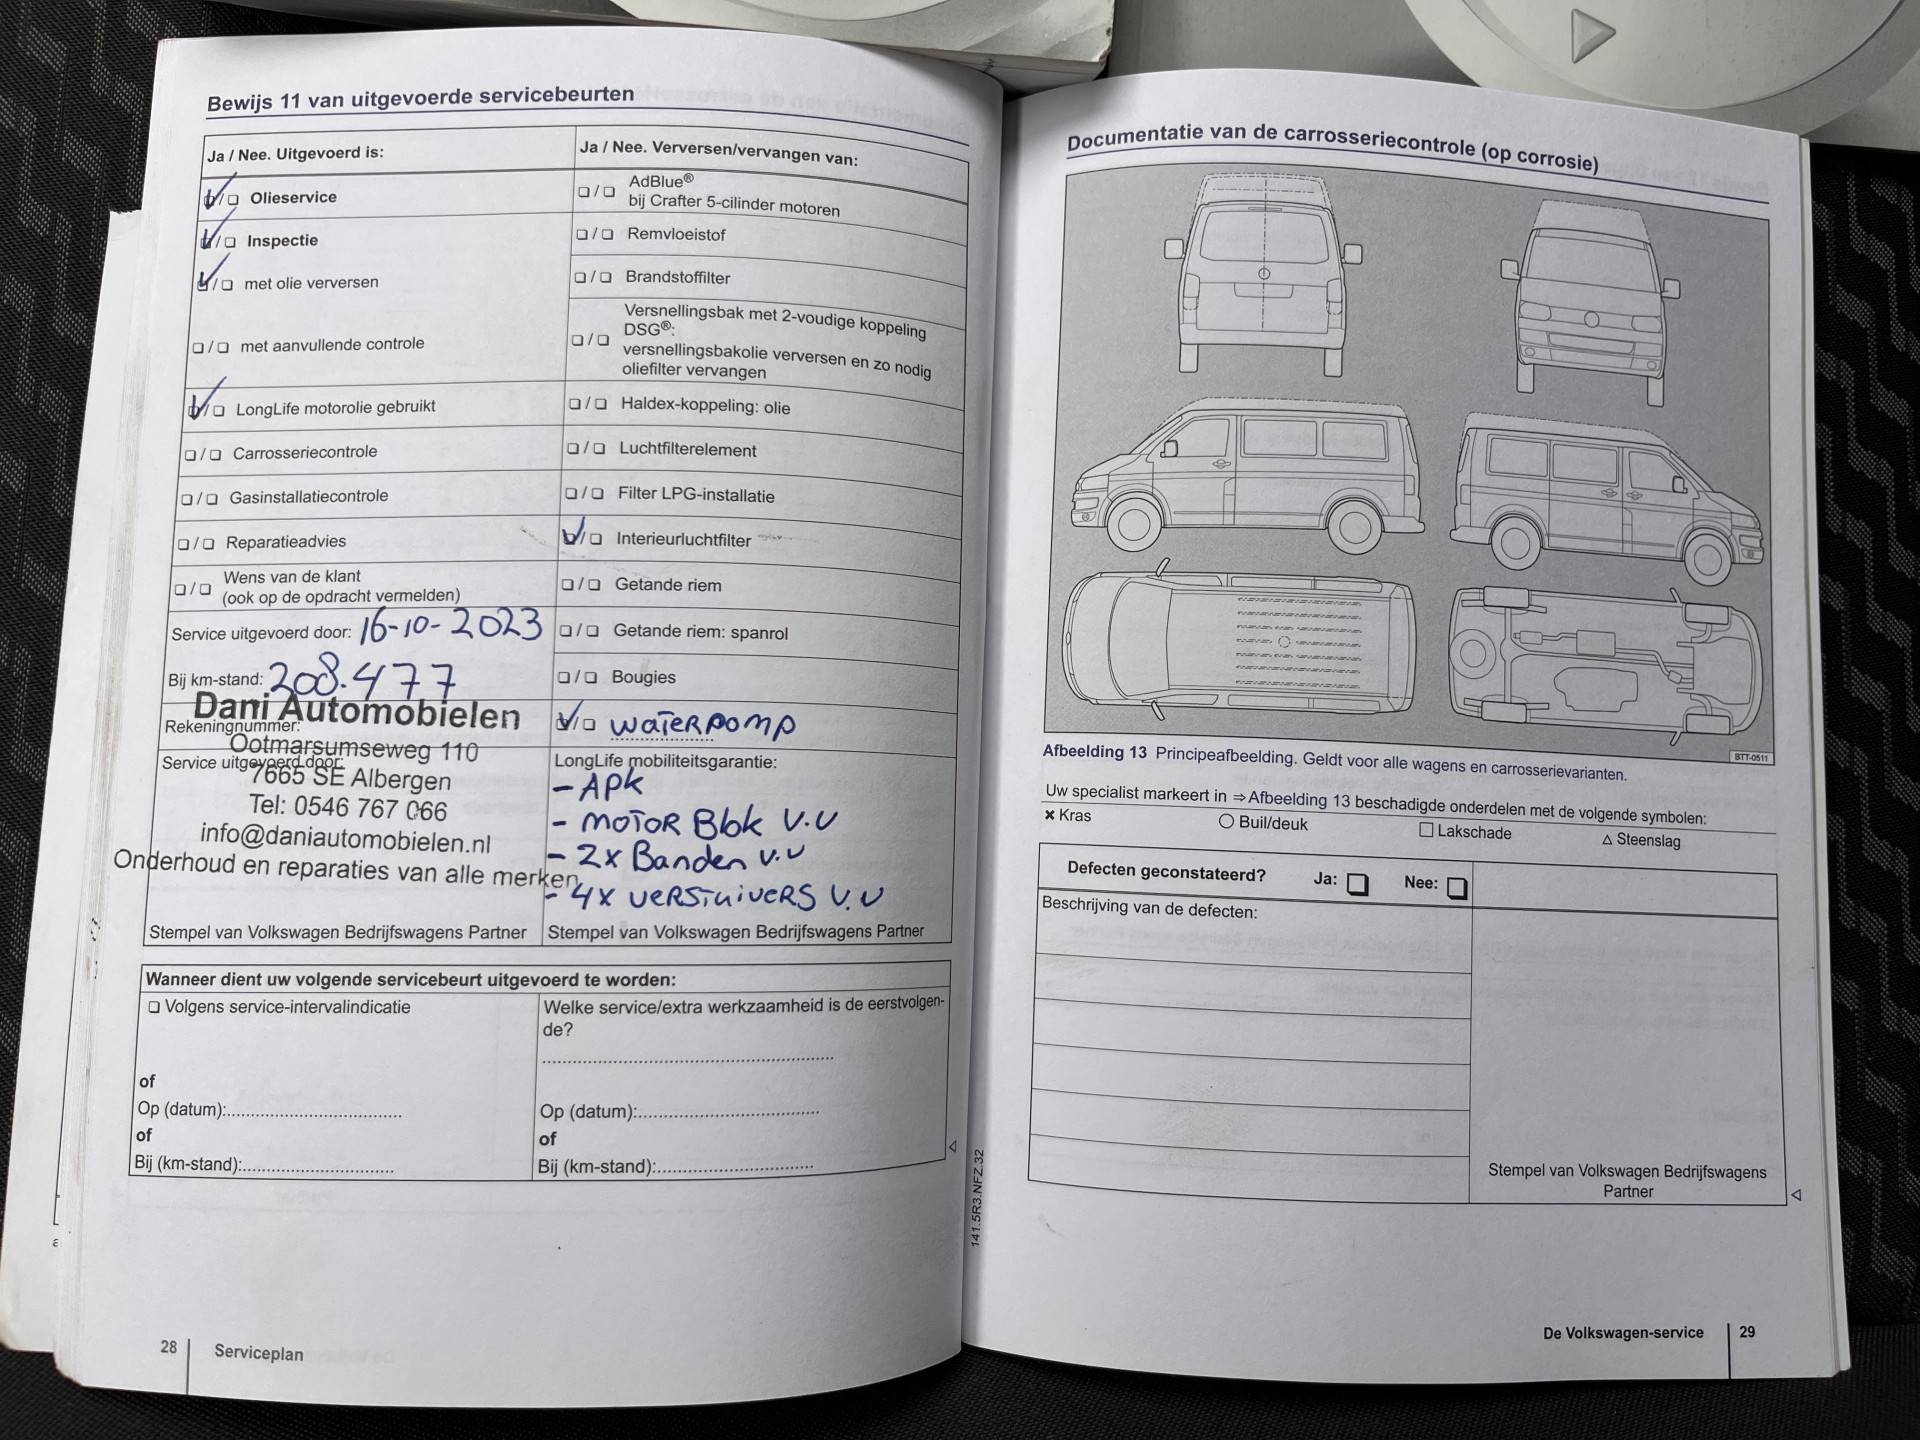 Bewijs 11 van uitgevoerde servicebeurten
Ja / Nee. Uitgevoerd is:
Olieservice
Inspectie
met olie verversen
met aanvullende controle
LongLife motorolie gebruikt
Carrosseriecontrole
Gasinstallatiecontrole
Reparatieadvies
Wens van de klant
(ook op de opdracht vermelden)
Service uitgevoerd door: 16-10-2023
Bij km-stand: 208.477
Rekeningnummer:
Service uitgevoerd door:
Dani Automobielen
Ootmarsumseweg 110
7665 SE Albergen
Tel: 0546 767 066
info@daniautomobielen.nl
Onderhoud en reparaties van alle merken
Stempel van Volkswagen Bedrijfswagens Partner
Ja / Nee. Verversen/vervangen van:
AdBlue®
bij Crafter 5-cilinder motoren
Remvloeistof
Brandstoffilter
Versnellingsbak met 2-voudige koppeling
DSG®:
versnellingsbakolie verversen en zo nodig
oliefilter vervangen
Haldex-koppeling: olie
Luchtfilterelement
Filter LPG-installatie
Interieurluchtfilter
Getande riem
Getande riem: spanrol
Bougies
waterpomp
LongLife mobiliteitsgarantie:
- APK
- MOTOR Blok V.V
- 2x Banden V.V
- 4x verstuivers V.V
Stempel van Volkswagen Bedrijfswagens Partner
Wanneer dient uw volgende servicebeurt uitgevoerd te worden:
Volgens service-intervalindicatie
of
Op (datum):
of
Bij (km-stand):
Welke service/extra werkzaamheid is de eerstvolgen-
de?
Op (datum):
of
Bij (km-stand):
28 Serviceplan
141.5R3.NFZ.32
Documentatie van de carrosseriecontrole (op corrosie)
BTT-0511
Afbeelding 13 Principeafbeelding. Geldt voor alle wagens en carrosserievarianten.
Uw specialist markeert in ⇒ Afbeelding 13 beschadigde onderdelen met de volgende symbolen:
× Kras ○ Buil/deuk □ Lakschade △ Steenslag
Defecten geconstateerd? Ja: Nee:
Beschrijving van de defecten:
Stempel van Volkswagen Bedrijfswagens
Partner
De Volkswagen-service 29